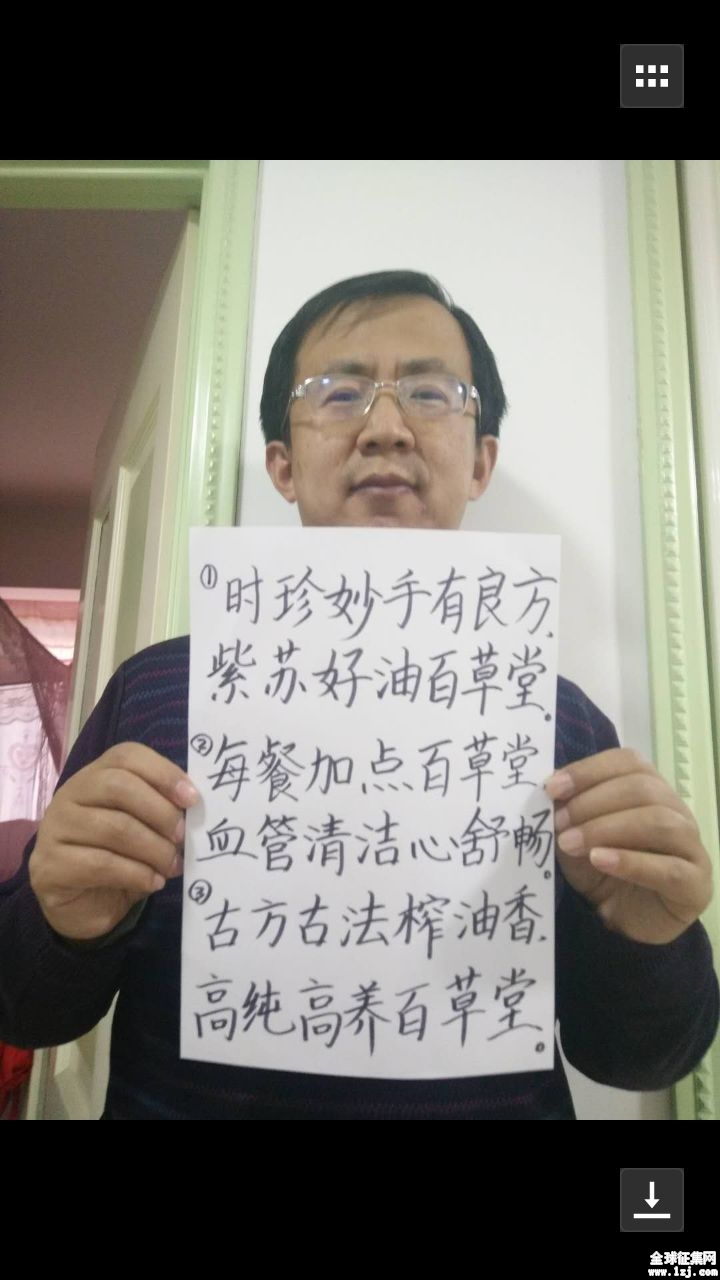 ①时珍妙手有良方.
紫苏好油百草堂.
②每餐加点百草堂.
血管清洁心舒畅.
③古方古法榨油香.
高纯高养百草堂.
全球征集网
www.1zj.com